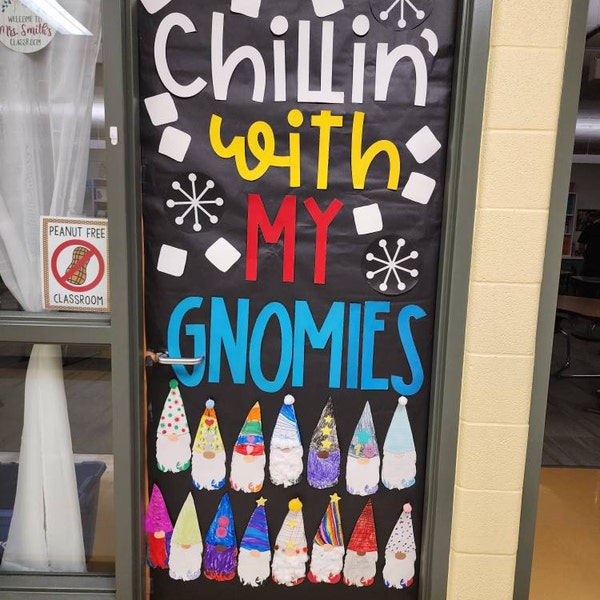 WELCOME TO
Mrs. Smith's
CLASSROOM
Chillin'
with
MY
GNOMIES
PEANUT FREE
CLASSROOM